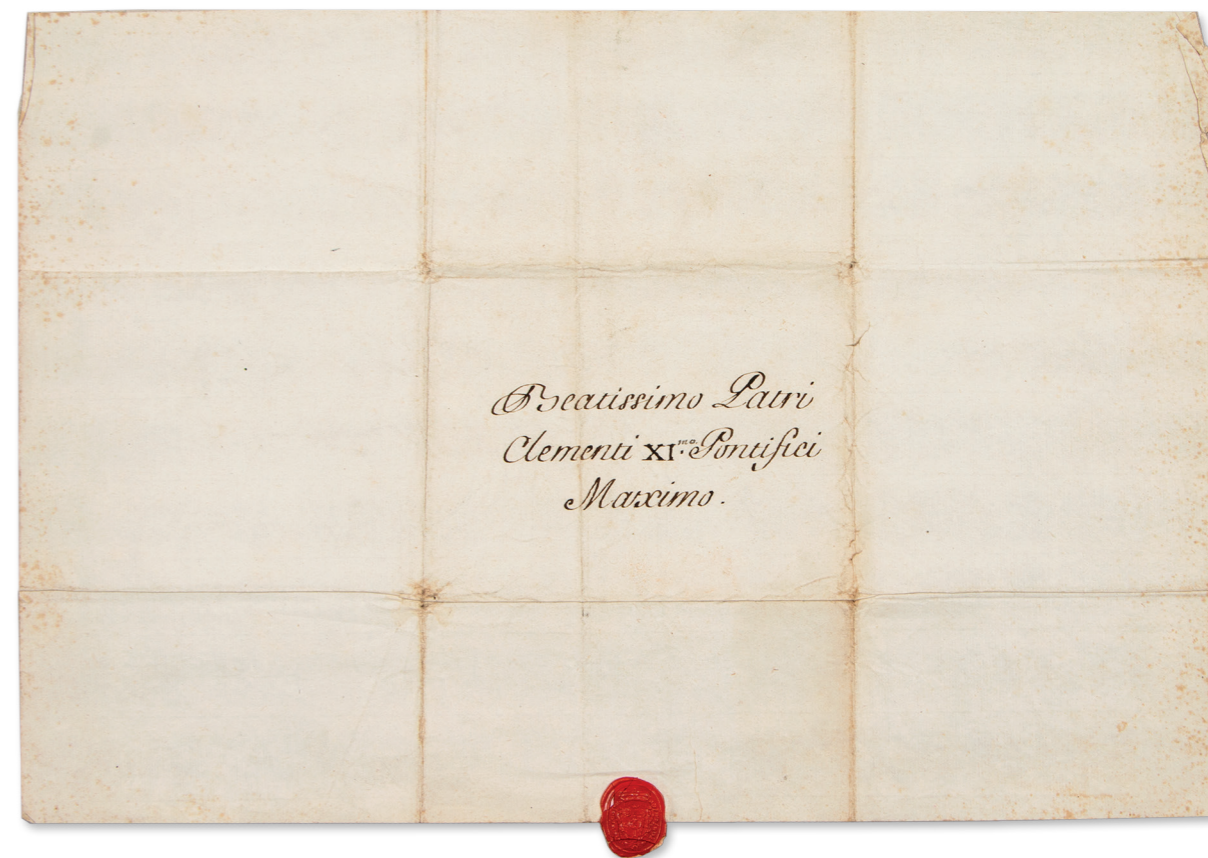 Beatissimo Patri
Clementi XI.mo Pontifici
Maximo.